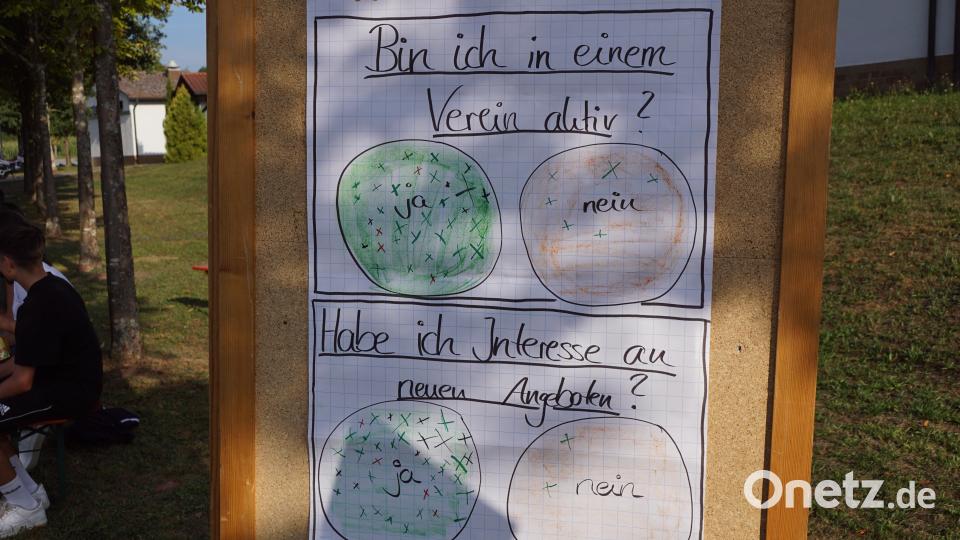 Bin ich in einem
Verein aktiv?
ja
nein
Habe ich Interesse an
neuen Angeboten?
ja
nein
Onetz.de